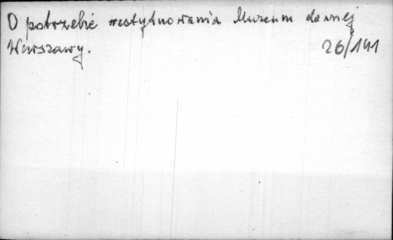 O potrzebie restytuowania Muzeum dawnej
Warszawy. 26/141